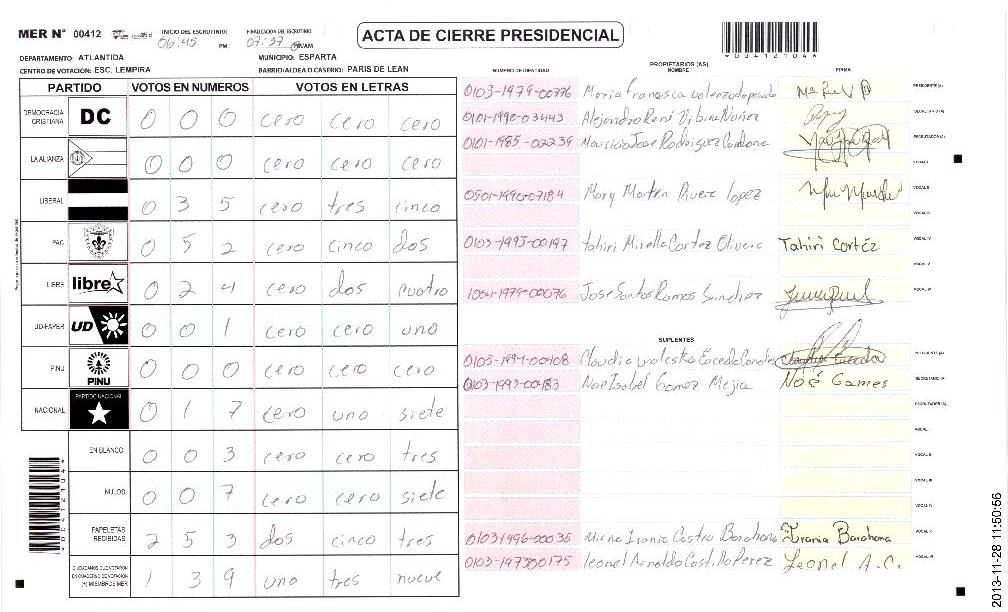 MER N° 00412
INICIO DEL ESCRUTINIO: 06:45 PM
FINALIZACION DEL ESCRUTINIO 07:37 PM/AM
ACTA DE CIERRE PRESIDENCIAL
*00412104*
DEPARTAMENTO: ATLANTIDA
MUNICIPIO: ESPARTA
CENTRO DE VOTACION: ESC. LEMPIRA
BARRIO/ALDEA O CASERIO: PARIS DE LEAN
PARTIDO VOTOS EN NUMEROS VOTOS EN LETRAS
DEMOCRACIA CRISTIANA DC 0 0 0 cero cero cero
LA ALIANZA 0 0 0 cero cero cero
LIBERAL 0 3 5 cero tres cinco
PAC 0 5 2 cero cinco dos
LIBRE libre 0 2 4 cero dos cuatro
UD-FAPER UD 0 0 1 cero cero uno
PINU PINU 0 0 0 cero cero cero
NACIONAL PARTIDO NACIONAL 0 1 7 cero uno siete
EN BLANCO 0 0 3 cero cero tres
NULOS 0 0 7 cero cero siete
PAPELETAS RECIBIDAS 2 5 3 dos cinco tres
CIUDADANOS QUE VOTARON EN CUADERNO DE VOTACION (+) MIEMBROS MER 1 3 9 uno tres nueve
NUMERO DE IDENTIDAD PROPIETARIOS (AS) NOMBRE FIRMA
0103-1979-00776 Maria francisca PRESIDENTE (A)
0101-1990-03443 Alejandro René Urbina Nuñez SECRETARIO (A)
0101-1985-02239 Mauricio Jose Rodriguez Cardona ESCRUTADOR (A)
VOCAL I
0501-1990-07184 Mary Rivera lopez VOCAL II
VOCAL III
0103-1995-00197 tahiri Mirella Cortez Olivera Tahiri Cortéz VOCAL IV
VOCAL V
Jose Santos Ramos Sanchez VOCAL VI
SUPLENTES
Claudia waleska PRESIDENTE (A)
0103-1993-00183 Noe Isabel Gomez Mejia Noé Games SECRETARIO (A)
ESCRUTADOR (A)
VOCAL I
VOCAL II
VOCAL III
VOCAL IV
0103-1996-00035 Castro Barahona Barahona VOCAL V
leonel Arnoldo Castillo Perez Leonel A.C. VOCAL VI
2013-11-28 11:50:56